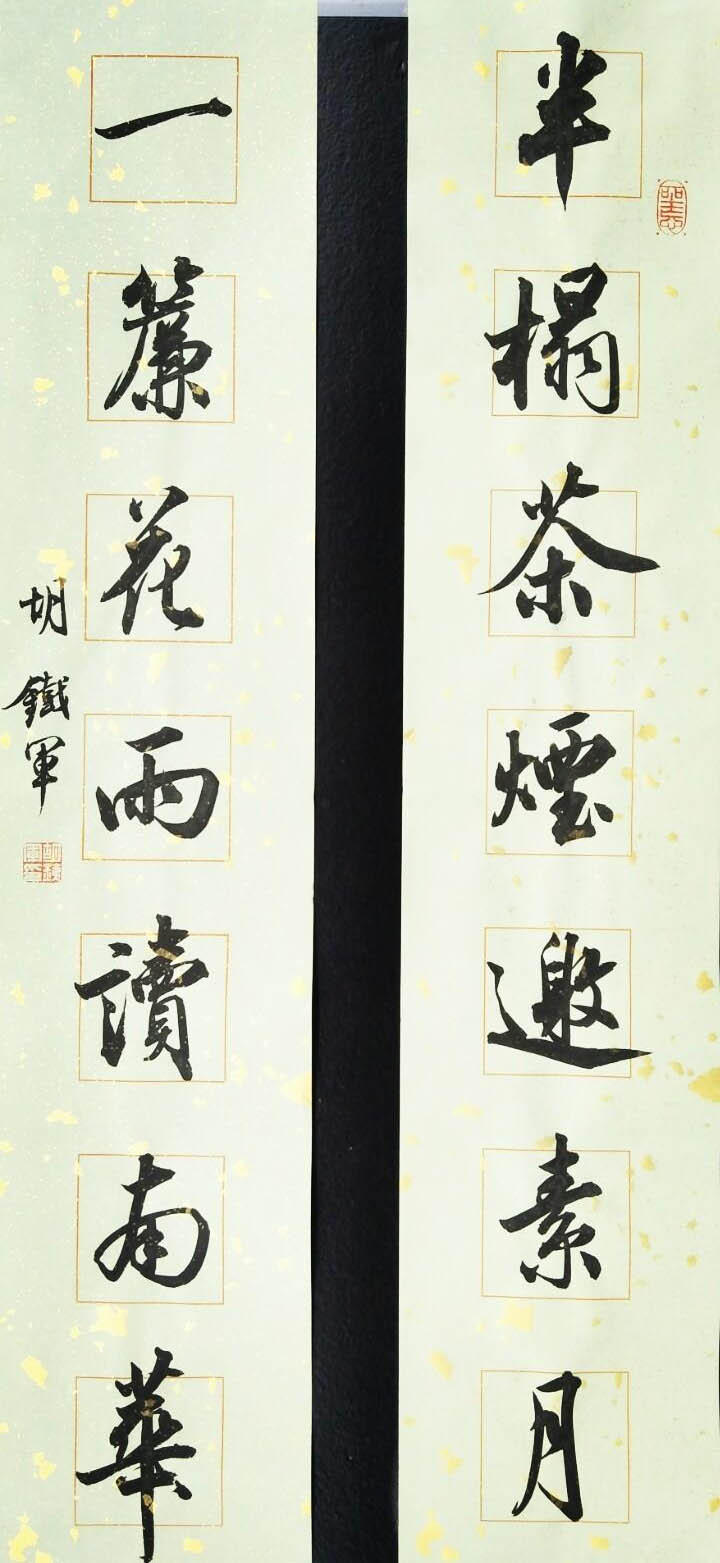 半榻茶煙邀素月
一簾花雨讀南華
胡鐵軍